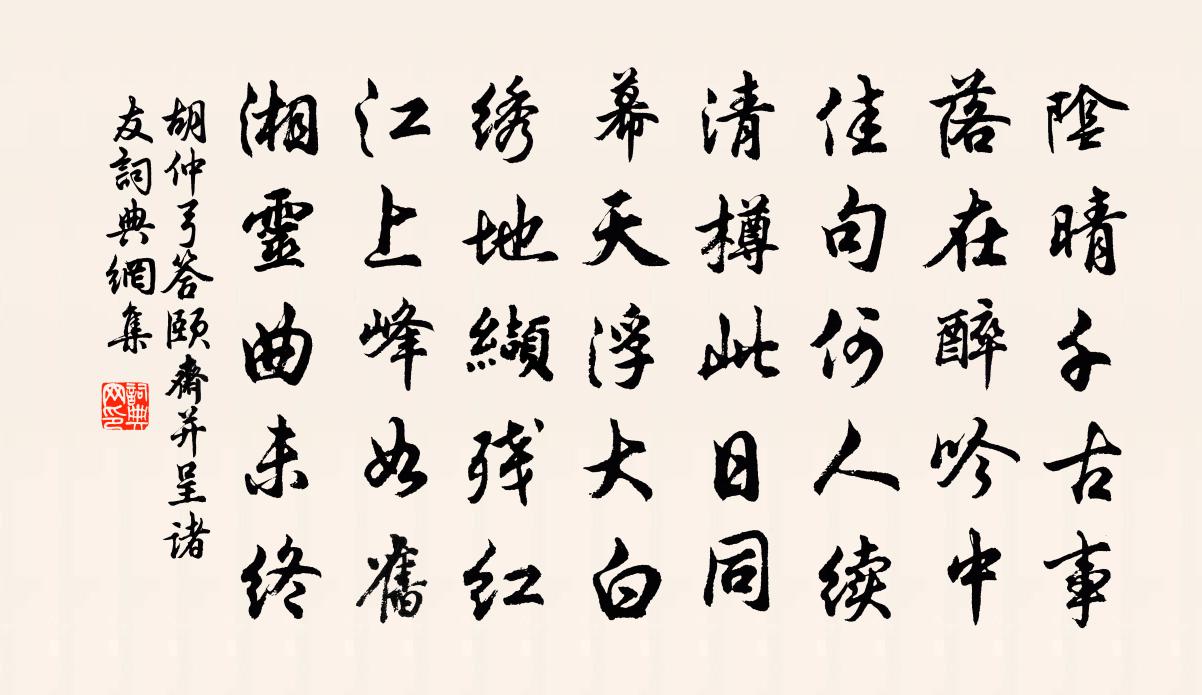 陰晴千古事
落在醉吟中
佳句何人续
清樽此日同
幕天浮大白
绣地纈残红
江上峰如舊
湘靈曲未终
胡仲弓答颐齋并呈诸
友詞典網集
詞典網印